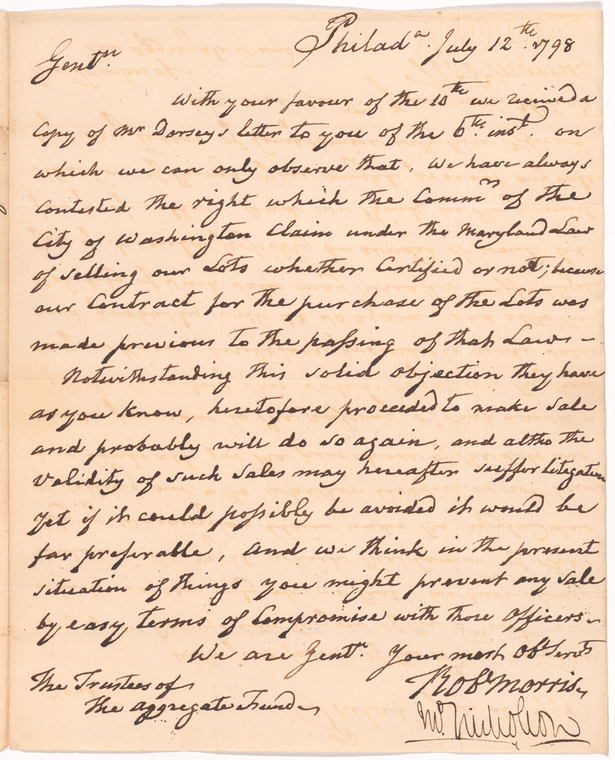 Philada. July 12th 1798
Gentn.
With your favour of the 10th we received a
Copy of Mr Dorseys letter to you of the 6th inst. on
which we can only observe that, we have always
contested the right which the Commrs of the
City of Washington Claim under the Maryland Law
of selling our Lots whether Certified or not; because
our Contract for the purchase of the Lots was
made previous to the passing of that Law –
Notwithstanding this solid objection they have
as you know, heretofore proceeded to make sale
and probably will do so again, and altho the
Validity of such Sales may hereafter suffer Litigation
yet if it could possibly be avoided it would be
far preferable, and we think in the present
situation of things you might prevent any sale
by easy terms of Compromise with those Officers –
We are Gentn. Your most Obt Servts
The Trustees of
the aggregate Fund
Robt Morris
Nicholson